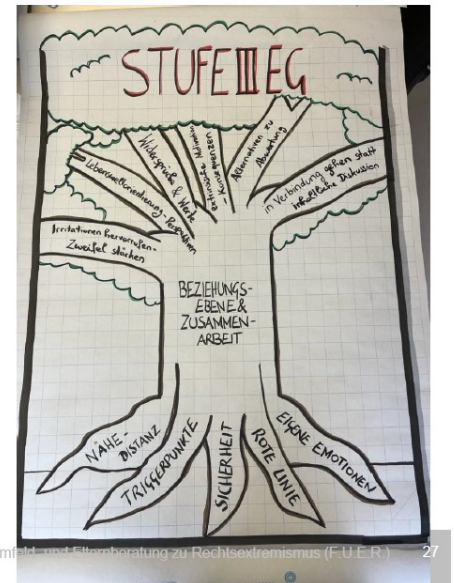 STUFE III EG
Irritationen hervorrufen-
Zweifel stärken
Lebensweltorientierung-Perspektiven
Widersprüche & Werte
Haltung
- Konsequenzen
Alternativen zu
Abwertung
in Verbindung gehen statt
inhaltliche Diskussion
BEZIEHUNGS-
EBENE &
ZUSAMMEN-
ARBEIT
NÄHE-
DISTANZ
TRIGGERPUNKTE
SICHERHEIT
ROTE LINIE
EIGENE EMOTIONEN
mfeld- und Elternberatung zu Rechtsextremismus (F.U.E.R.)
27